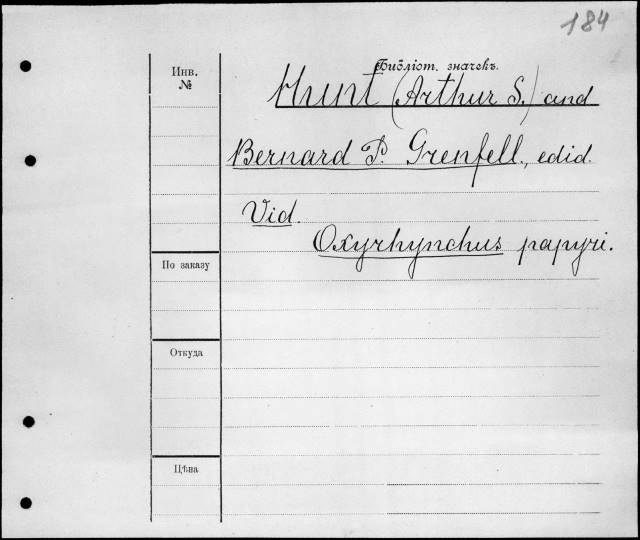 184
Библіот. значекъ.
Инв.
№
Hunt (Arthur S.) and
Bernard P. Grenfell., edid.
Vid.
Oxyrhynchus papyri.
По заказу
Откуда
Цѣна